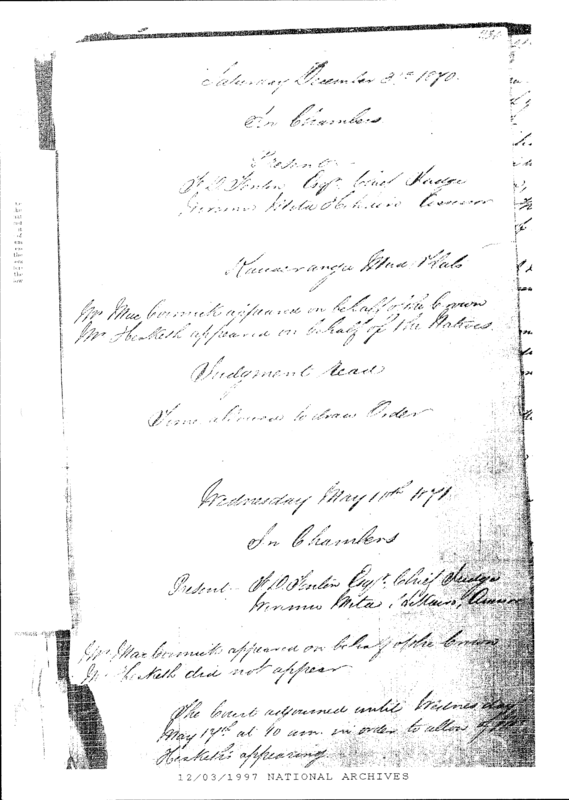 Saturday December 3rd 1870.
In Chambers
Present
F. D. Fenton Esqr. Chief Judge
Assessor
Kauaeranga Mud Flats
Mr MacCormick appeared on behalf of the Crown
Mr Hesketh appeared on behalf of the Natives
Judgment read
Time allowed to draw Order
Wednesday May 1871
In Chambers
Present F. D. Fenton Esqr. Chief Judge
Assessor
Mr MacCormick appeared on behalf of the Crown
Mr Hesketh did not appear
The Court adjourned until Wednesday
May 17th at 10 am. in order to allow of Mr
Hesketh's appearing.
12/03/1997 NATIONAL ARCHIVES